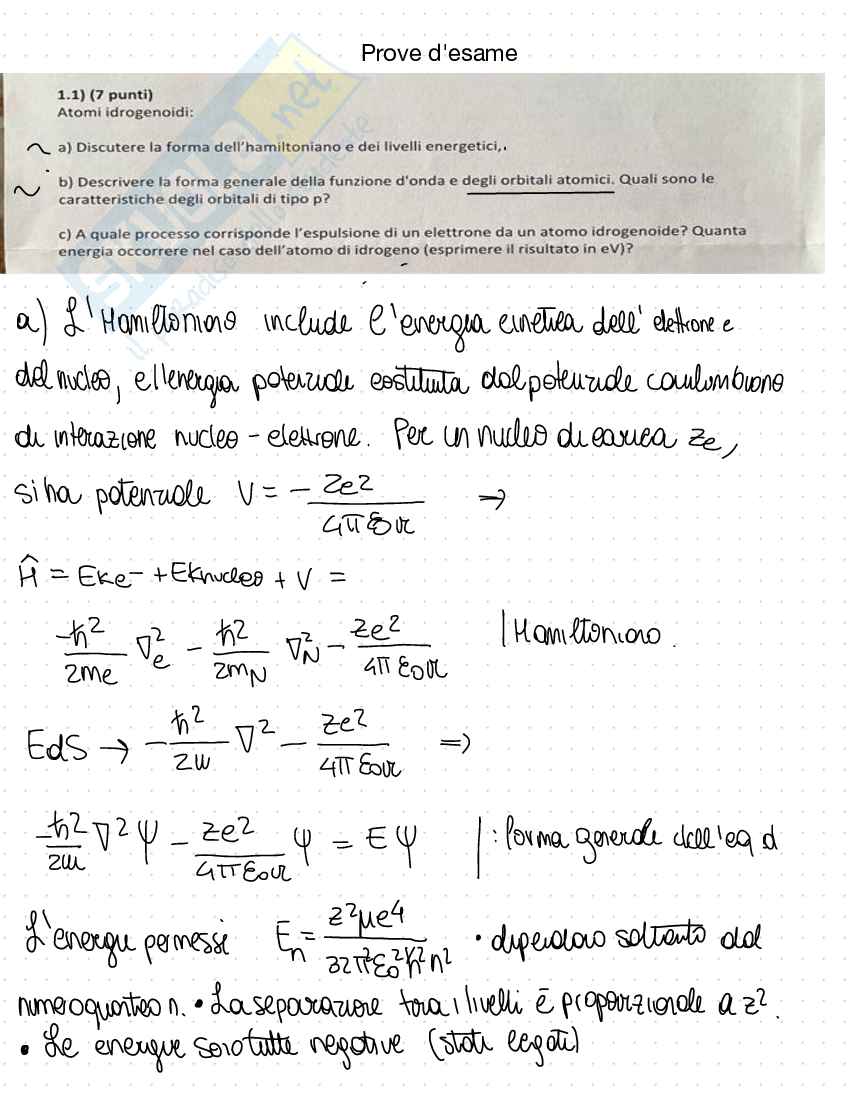 Prove d'esame
1.1) (7 punti)
Atomi idrogenoidi:
a) Discutere la forma dell'hamiltoniano e dei livelli energetici,.
b) Descrivere la forma generale della funzione d'onda e degli orbitali atomici. Quali sono le
caratteristiche degli orbitali di tipo p?
c) A quale processo corrisponde l'espulsione di un elettrone da un atomo idrogenoide? Quanta
energia occorrere nel caso dell'atomo di idrogeno (esprimere il risultato in eV)?
a) L'Hamiltoniano include l'energia cinetica dell'elettrone e
del nucleo, e l'energia potenziale costituita dal potenziale coulombiano
di interazione nucleo-elettrone. Per un nucleo di carica Ze,
si ha potenziale V = - Ze2 / 4πε0r ⇒
Ĥ = Eke- + Eknucleo + V =
-ħ2/2me ∇2e - ħ2/2mN ∇2N - Ze2/4πε0r | Hamiltoniano.
EdS → -ħ2/2μ ∇2 - Ze2/4πε0r ⇒
-ħ2/2μ ∇2ψ - Ze2/4πε0r ψ = Eψ | : forma generale dell'eq d
L'energie permessi En = Z2μe4 / 32π2ε02ħ2n2 • dipendono soltanto dal
numero quantico n. • La separazione tra i livelli è proporzionale a Z2.
• Le energie sono tutte negative (stati legati)